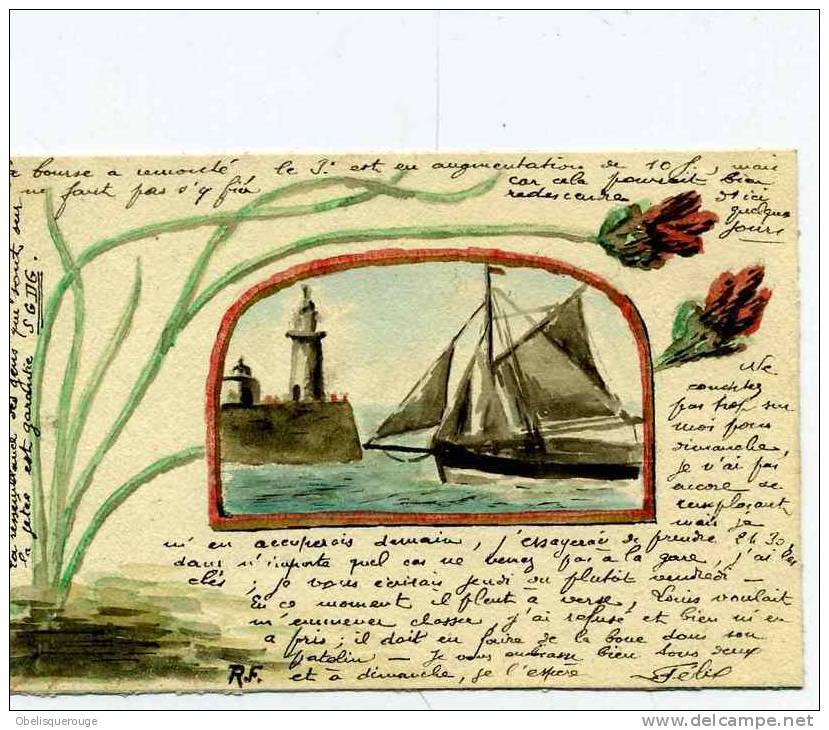 la bourse a remonté le 3% est en augmentation de 10 f, mais
ne faut pas s'y fier car cela pourrait bien
redescendre d'ici
quelques
jours
La ressemblance des gens qui sont sur
la jetée est garantie SGDG.
Ne
comptez
pas trop sur
moi pour
dimanche,
je n'ai pas
encore de
remplaçant
mais je
m'en occuperais demain, j'essayerai de prendre 2h30,
dans n'importe quel cas ne venez pas à la gare, j'ai les
clés; je vous écrirais jeudi ou plutôt vendredi —
En ce moment il pleut à verse, Louis voulait
m'emmener chasser, j'ai refusé et bien m'en
a pris; il doit en faire de la boue dans son
patelin — Je vous embrasse bien tous deux
et à dimanche, je l'espère Félix
R.F.
Obelisqueroûge
www.delcampe.net